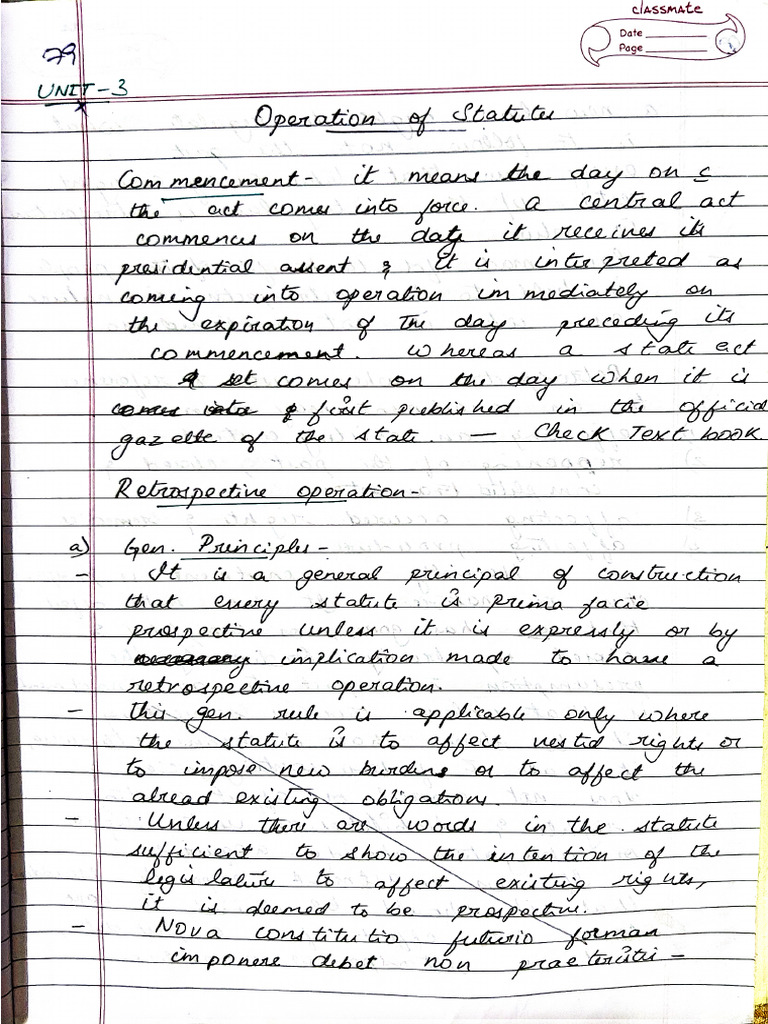 classmate
Date
Page
79
UNIT-3
Operation of Statutes
Commencement- it means the day on c
the act comes into force. A central act
commences on the date it receives its
presidential assent & It is interpreted as
coming into operation immediately on
the expiration of The day preceding its
commencement. Whereas a state act
set comes on the day when it is
first published in the official
gazette of the state. — Check Text book.
Retrospective operation-
a) Gen. Principles-
- It is a general principal of construction
that every statute is prima facie
prospective unless it is expressly or by
implication made to have a
retrospective operation.
- This gen. rule is applicable only where
the statute is to affect vested rights or
to impose new burdens or to affect the
alread existing obligations.
- Unless there are words in the statute
sufficient to show the intention of the
legislature to affect existing rights,
it is deemed to be prospective.
- Nova constitutio futurio forman
imponere debet non praeteriti -